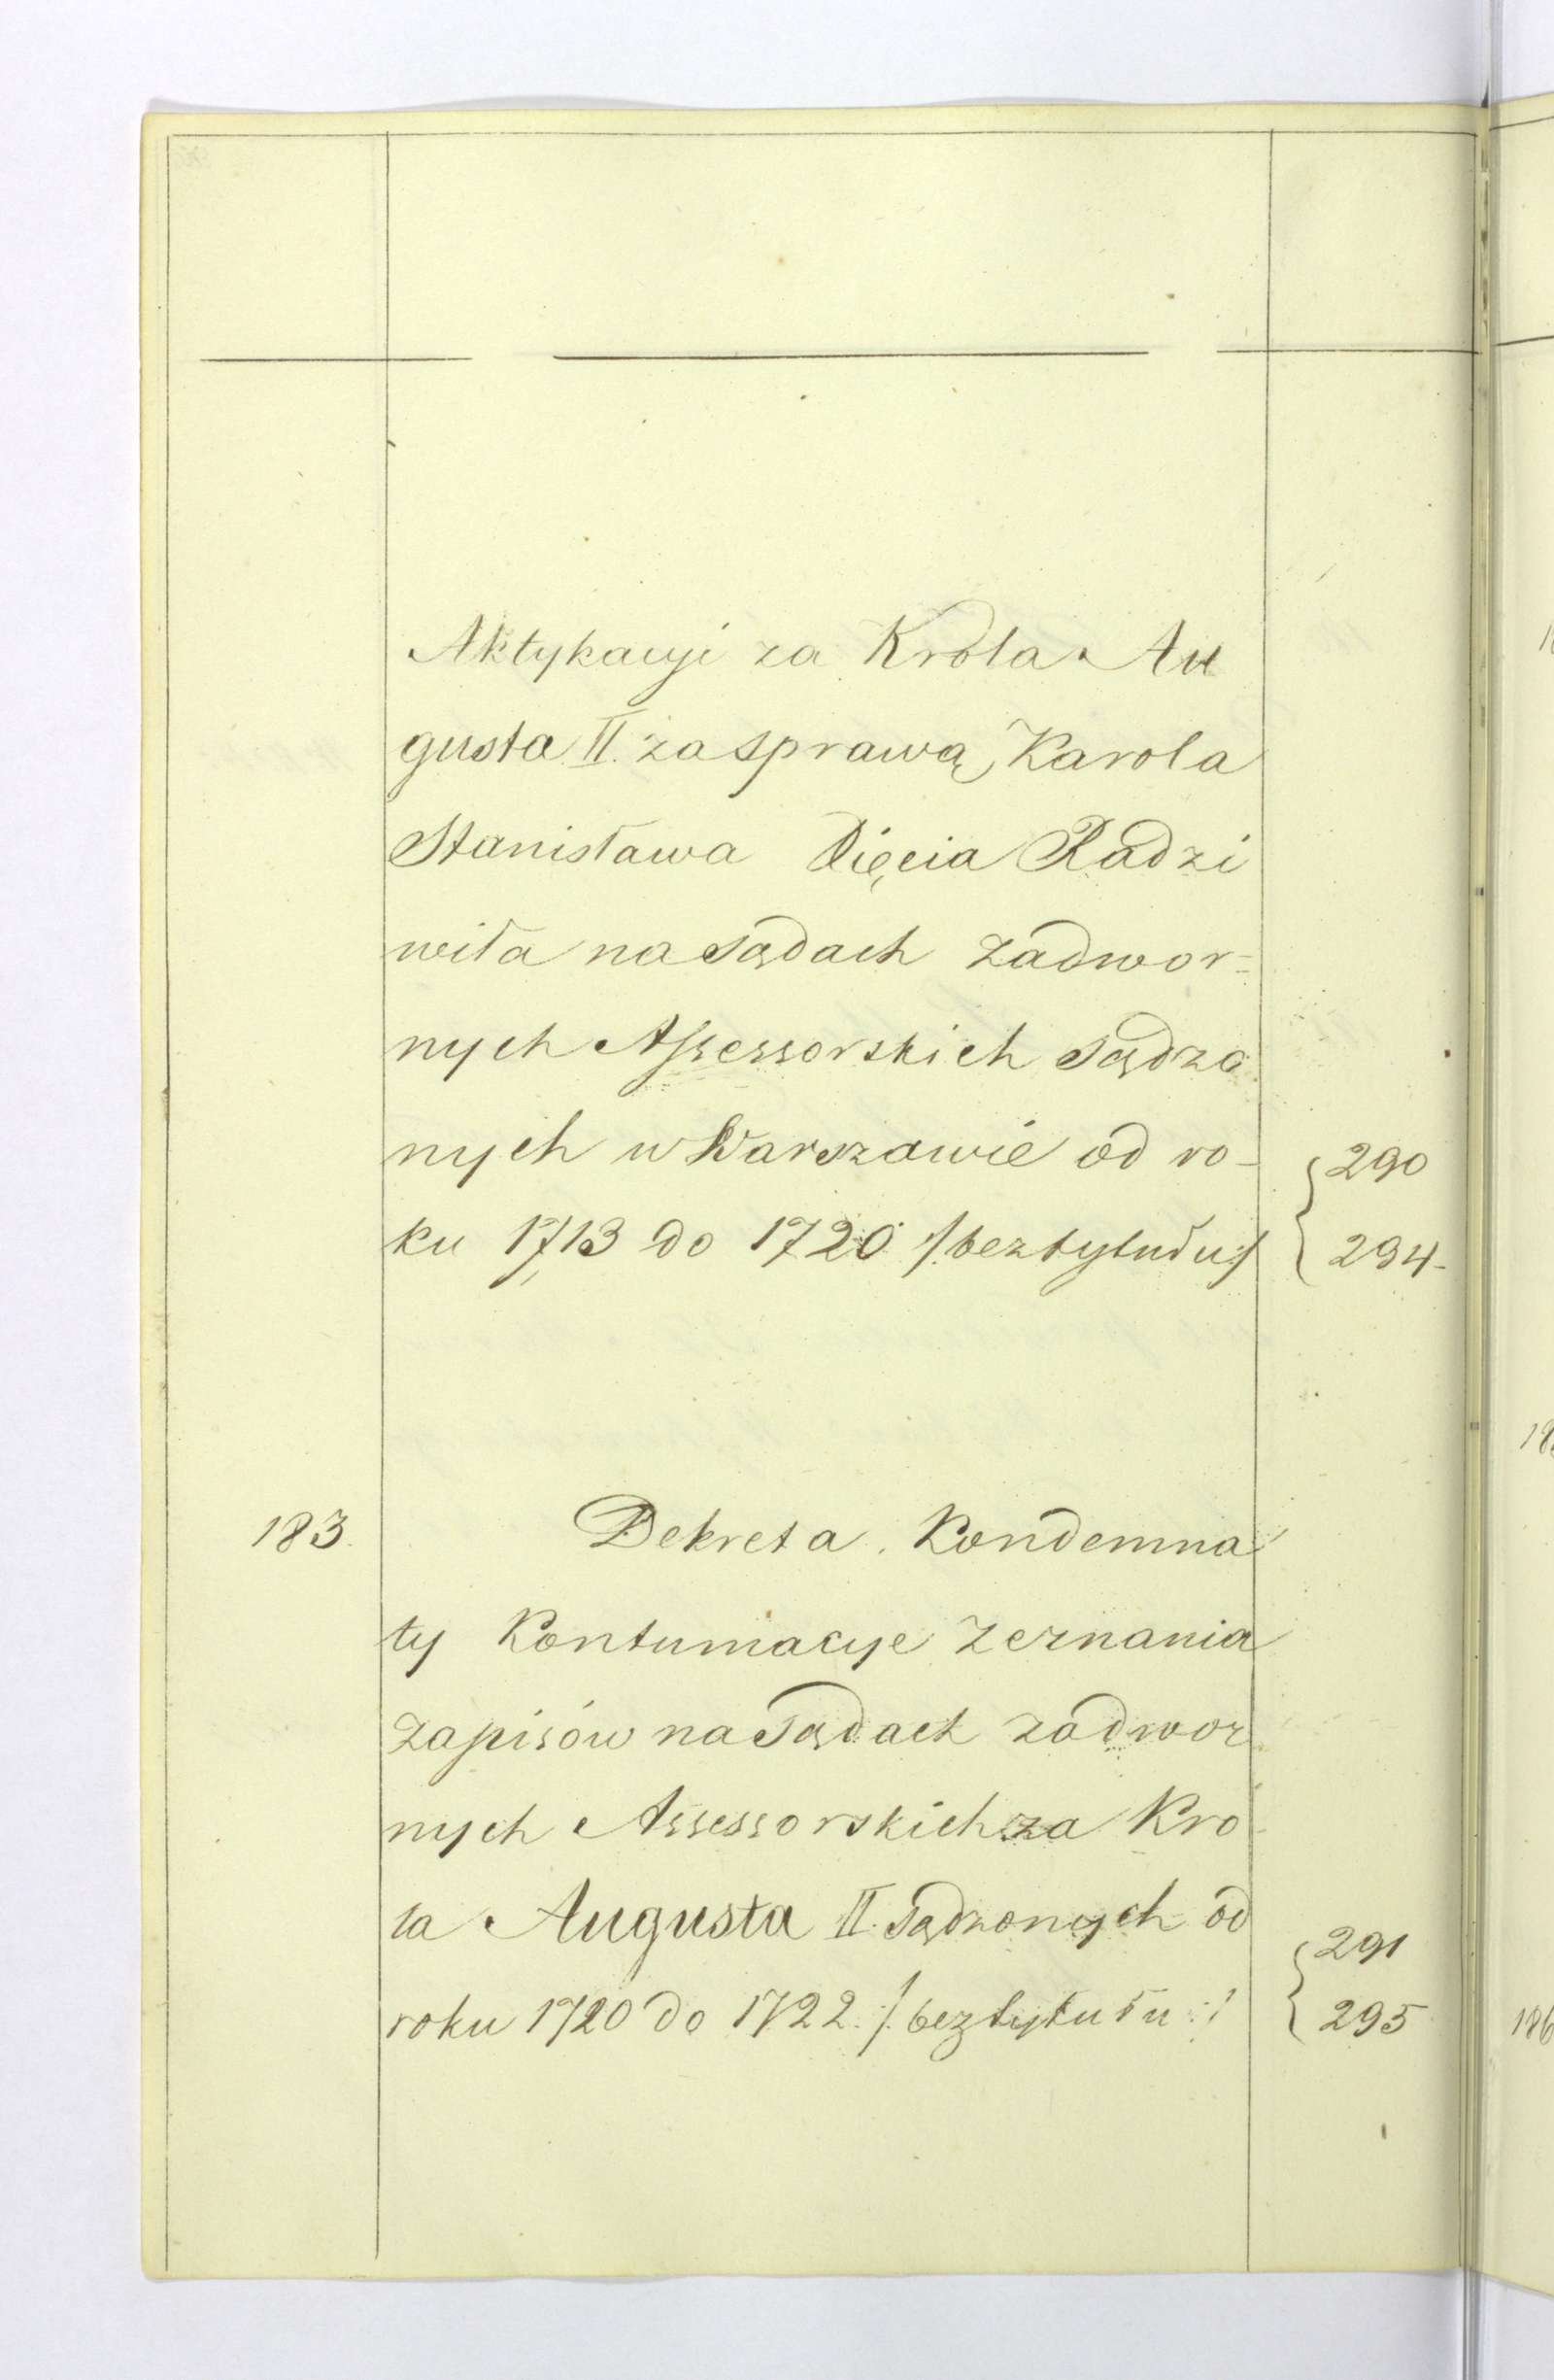 Aktykacyi za Krola Au
gusta II. za sprawą Karola
Stanisława Xięcia Radzi
wiła na Sądach zadwor=
nych Assessorskich Sądza
nych w Warszawie od ro- 290
ku 1713 do 1720 /: bez tytułu :/ 294
183. Dekreta. Kondemna
ty Kontumacye Zeznania
Zapisów na Sądach zadwor
nych Assessorskich za Kro
la Augusta II. Sądzonych od 291
roku 1720 do 1722. /: bez tytułu :/ 295
186